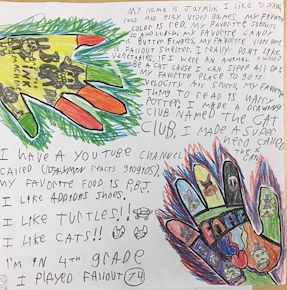 MY name is JAYMIN I LIKE TO DRAW,
read AND PLAY VIDEO GAMES. MY FAVORITE
COLOR IS red. MY FAVORITE SUBJECT
IS LUNCH. MY FAVORITE CANDY
BUTTER FINGERS. MY FAVORITE VIDEO GAME
IS FALLOUT SHELTER. I REALLY DONT LIKE
VEGETABLES. IF I WERE AN ANIMAL WOULD
BE A CAT CAUSE I CAN SLEEP ALL DAY
MY FAVORITE PLACE TO GO IS
VELOCITY AIR SPORTS. MY FAVORITE
THING TO READ IS HARRY
POTTER. I MADE A DRAWING
CLUB NAMED THE CAT
CLUB. I MADE A SUPER
HERO CALLED
CAT
I HAVE A YOUTUBE CHANNEL
CALLED (JAYMIN REACTS 910910).
MY FAVORITE FOOD IS P.B.J.
I LIKE JORDANS SHOES.
I LIKE TURTLES!!
I LIKE CATS!!
I'M IN 4TH GRADE
I PLAYED FALLOUT 74